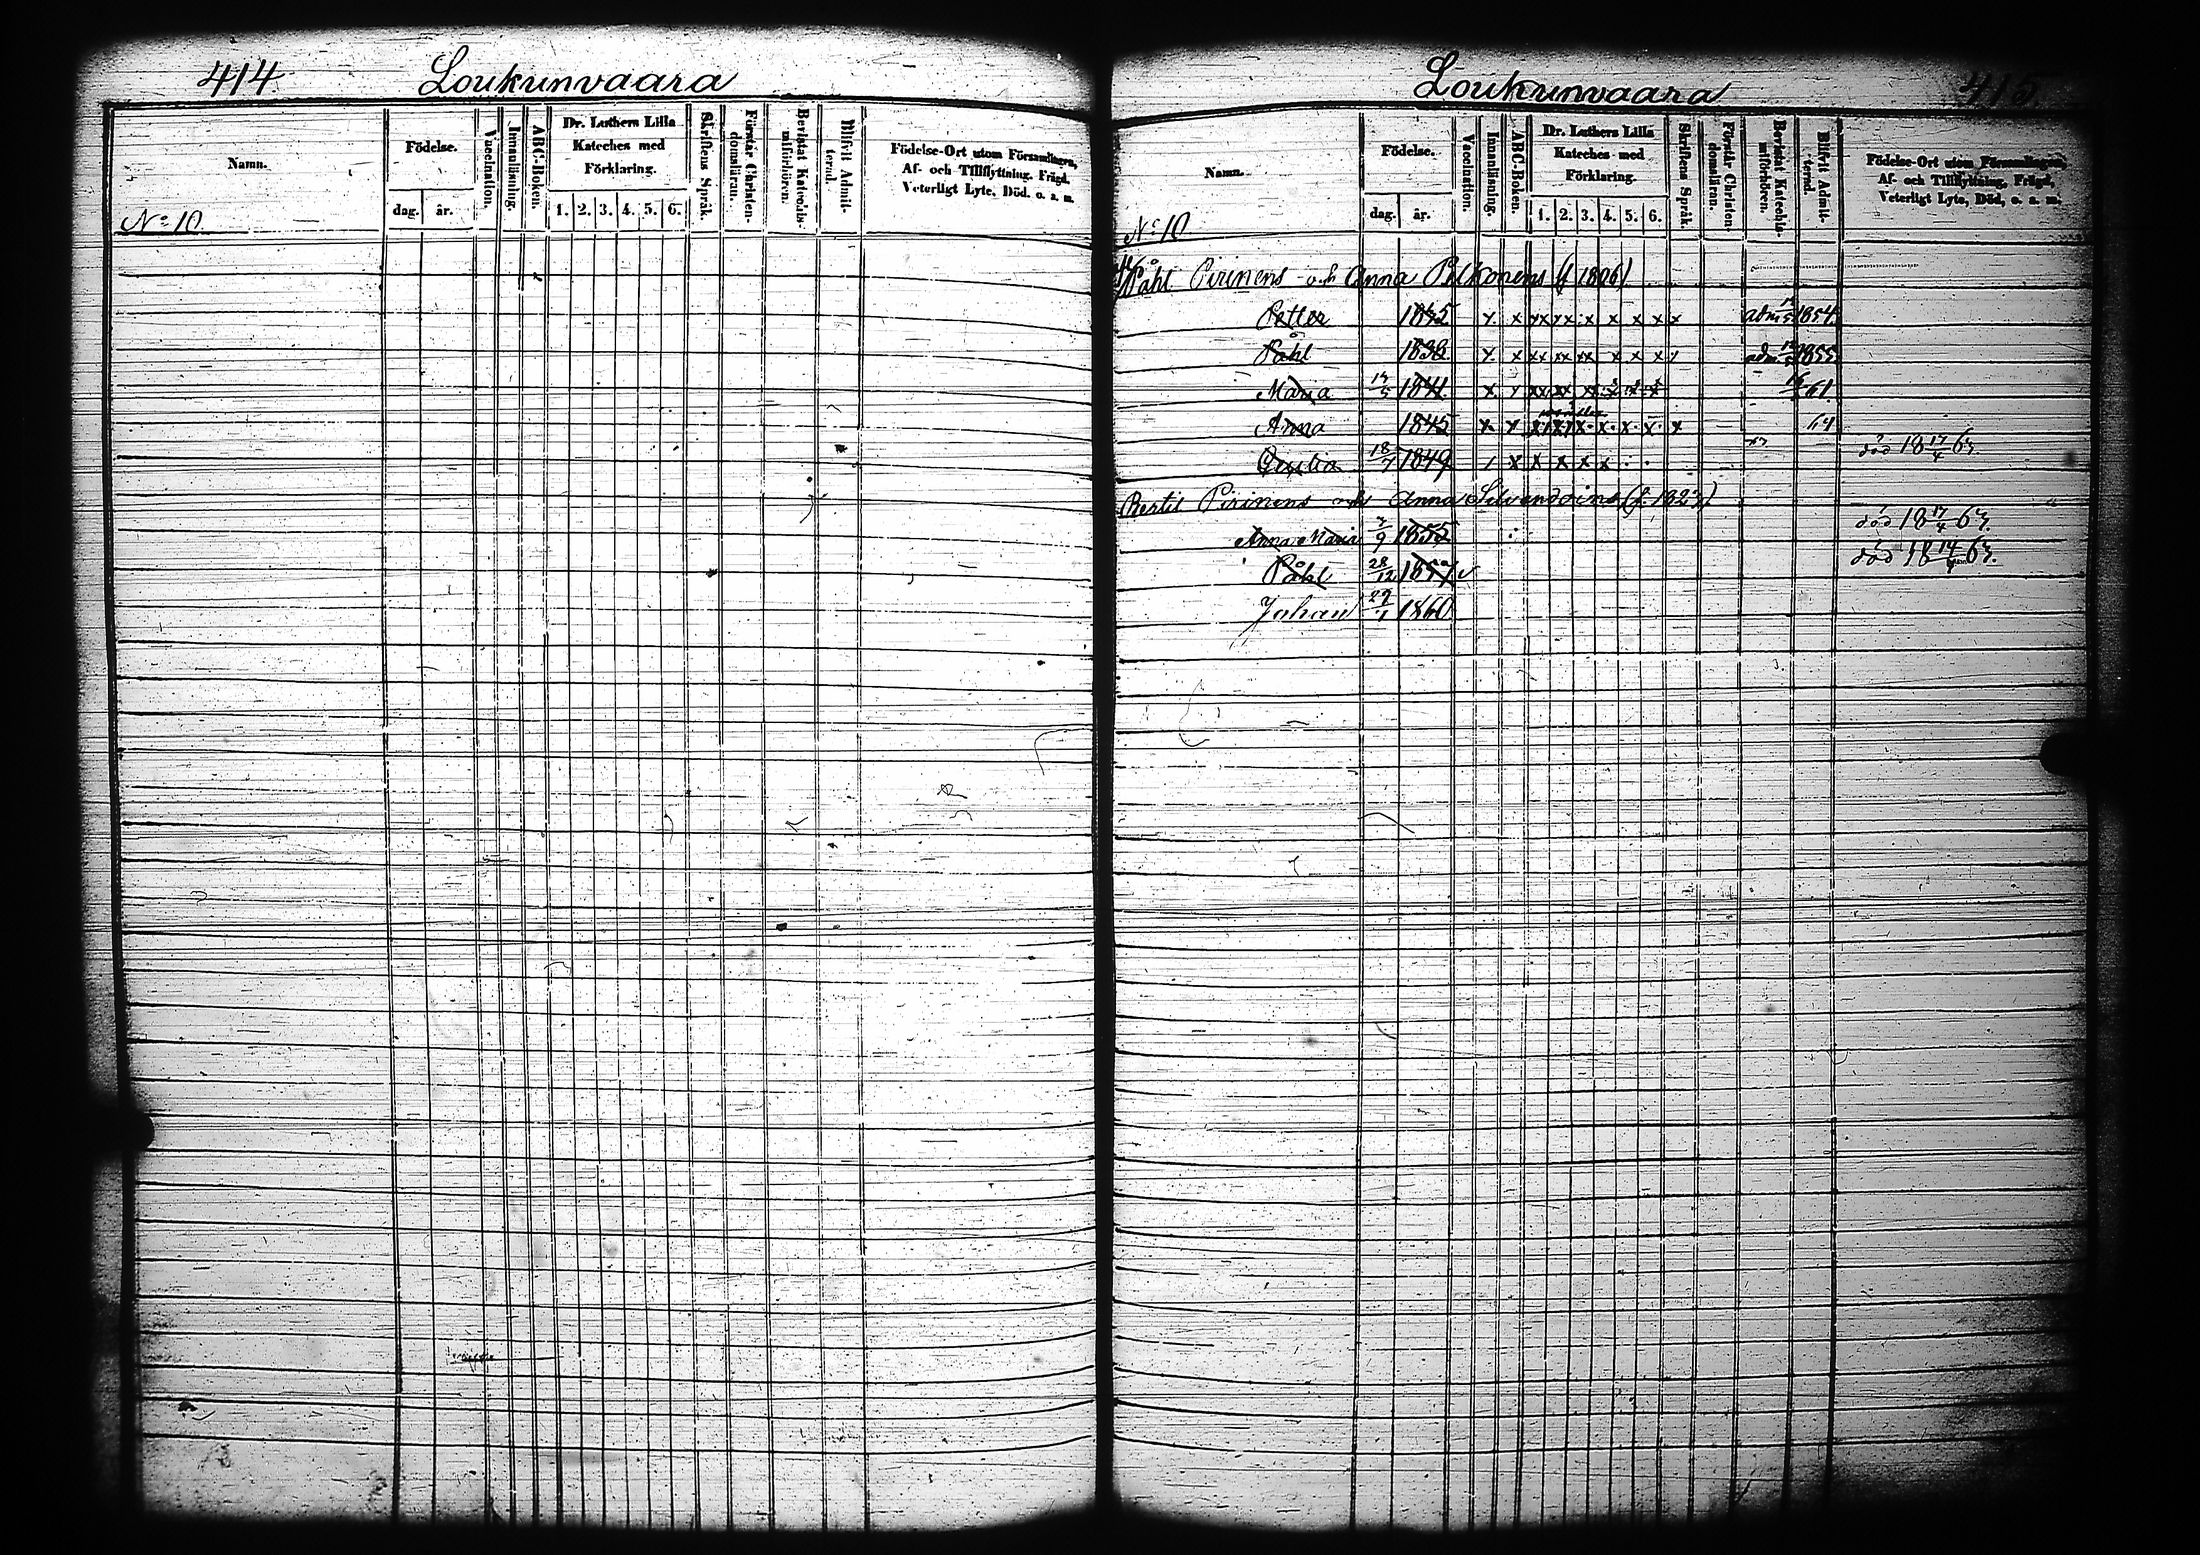 414 Loukunvaara
Namn. Födelse. dag. år. Vaccination. Innanläsning. ABC-Boken. Dr. Luthers Lilla Kateches med Förklaring. 1. 2. 3. 4. 5. 6. Skriftens Språk. Förstår Christendomsläran. Bevistat Katechismiförhören. Blifvit Admitterad. Födelse-Ort utom Församlingen, Af- och Tillflyttning. Frägd, Veterligt Lyte, Död. o. s. m.
No 10.
Loukunvaara 415
Namn. Födelse. dag. år. Vaccination. Innanläsning. ABC-Boken. Dr. Luthers Lilla Kateches med Förklaring. 1. 2. 3. 4. 5. 6. Skriftens Språk. Förstår Christendomsläran. Bevistat Katechismiförhören. Blifvit Admitterad. Födelse-Ort utom Församlingen, Af- och Tillflyttning, Frägd, Veterligt Lyte, Död, o. s. m.
No 10
Påhl Pirinens och Anna Pelkonens (f 1806)
Petter 1835 x x xx xx x x x x x adm 1854.
Påhl 1838 x x xx xx xx x x x x adm 1855
Maria 1841 x x xx xx 61
Anna 1845 x x x x x x x 64
18/7 1849 x x x x x död 18 17/4 63
Bertil Pirinens och Anna (f. 1823)
Anna Maria 9 1855 död 18 17/4 63.
Påhl 28/12 1857 v död 18 14/4 63.
Johan 29/1 1860